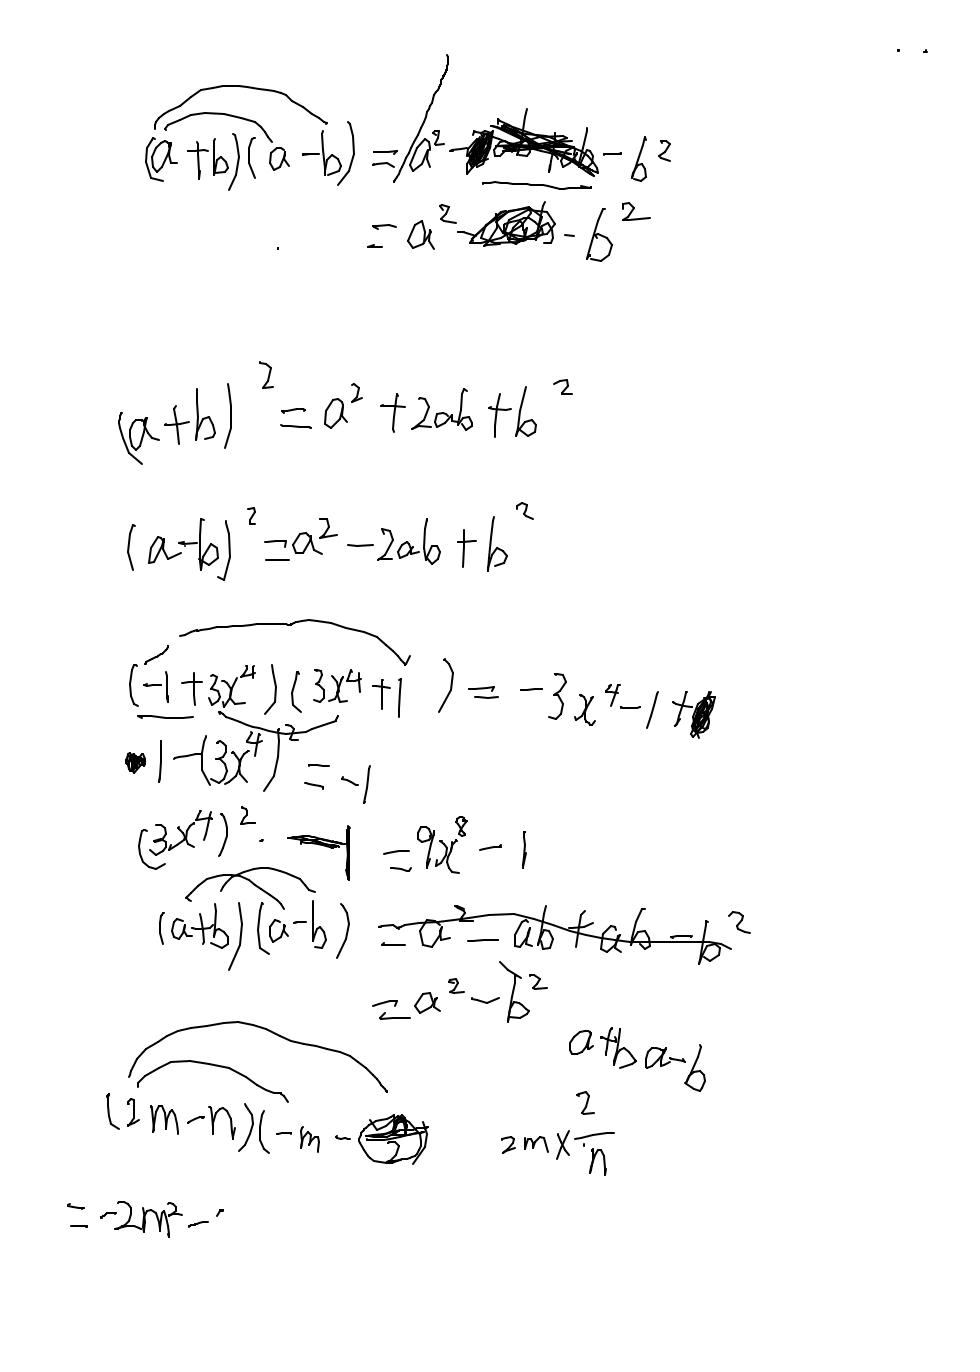 (a+b)(a-b) = a² - - b²
= a² - - b²
(a+b)² = a² + 2ab + b²
(a-b)² = a² - 2ab + b²
(-1+3x⁴)(3x⁴+1) = -3x⁴-1+
1-(3x⁴)² = -1
(3x⁴)² · -1 = 9x⁸ - 1
(a+b)(a-b) = a² - ab + ab - b²
= a² - b²
a+b a-b
(2m-n)(-m - n/2)
2m × 2/n
= -2m² -